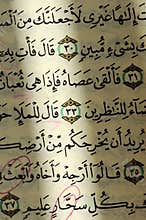 ت إِلَٰهًا غَيْرِى لَأَجْعَلَنَّكَ مِنَ الْمَ
كَ بِشَىْءٍ مُّبِينٍ ٣٠ قَالَ فَأْتِ بِهِ
٣١ فَأَلْقَىٰ عَصَاهُ فَإِذَا هِىَ ثُعْبَانٌ
آءُ لِلنَّٰظِرِينَ ٣٣ قَالَ لِلْمَلَإِ حَوْ
يُرِيدُ أَن يُخْرِجَكُم مِّنْ أَرْضِكُ
٣٥ قَالُوٓا۟ أَرْجِهْ وَأَخَاهُ وَٱبْعَثْ
كَ بِكُلِّ سَحَّارٍ عَلِيمٍ ٣٧